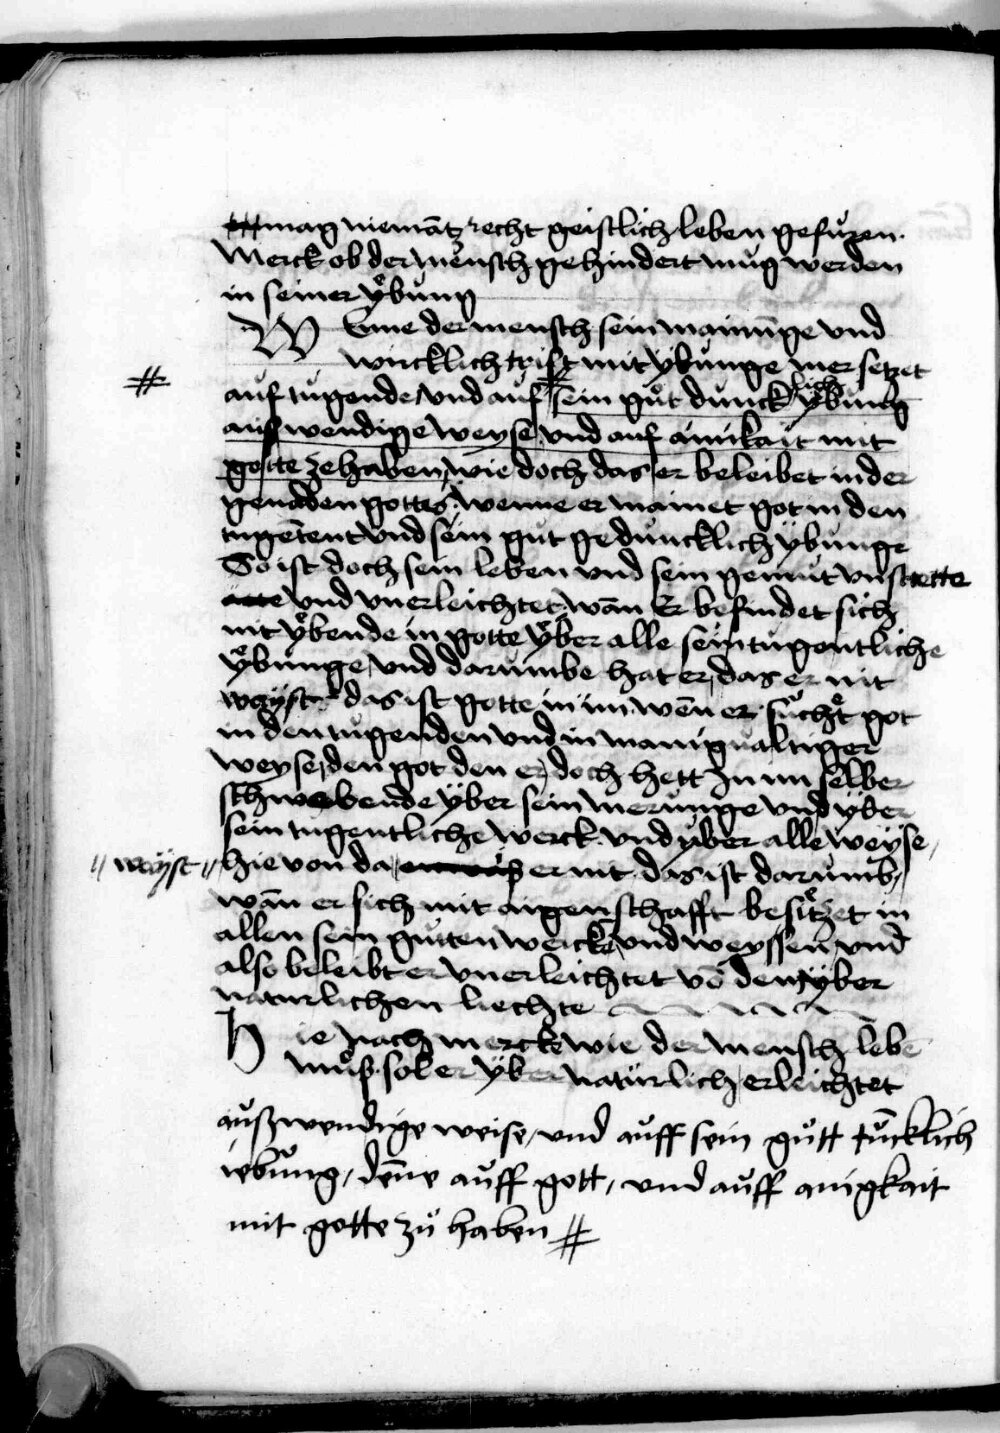 mag niemātz recht geistlich leben gefüren.
Merck ob der mensch gehindert mug werden
in seiner ÿbung
Wenne der mensch sein mainūnge vnd
wircklich trifft mit ÿbunge mer setzet
#
auf tugende vnd auf sein gůt duncklich ÿbung
auswendige weyse vnd auf ainikait mit
gotte ze haben, wie doch das er beleibet in der
genaden gottes, wenne er mainet got in den
tugētent vnd sein gut geduncklich ÿbunge
So ist doch sein leben vnd sein gemüt vnstette
vnd vnerleichtet. wān Er befindet sich
nit ÿbende in gotte ÿber alle sein tugentliche
ÿbunge, vnd darumbe hat er, das er nit
wayst. das ist gotte in im. wēn er sůcht got
in den tugenden vnd in manigualtiger
weyse, den got den er doch hett In im selber
schwebende ÿber sein merunge vnd ÿber
sein tugentliche werck. vnd ÿber alle weyse,
// wayst // hie von da er nit. das ist darumb,
wān er sich mit aigenschafft besitzet in
allen sein gutten wercke vnd weyssen, vnd
also beleibt er vnerleichtet vō dem ÿber
naturlichen liechte
Hie nach merck wie der mensch lebē
muß. sol er ÿbernatürlich erleichtet
außwendige weise, vnd auff sein gůtt tůncklich
iebung, dēne auff gott, vnd auff ainigkait
mit gotte zů haben #